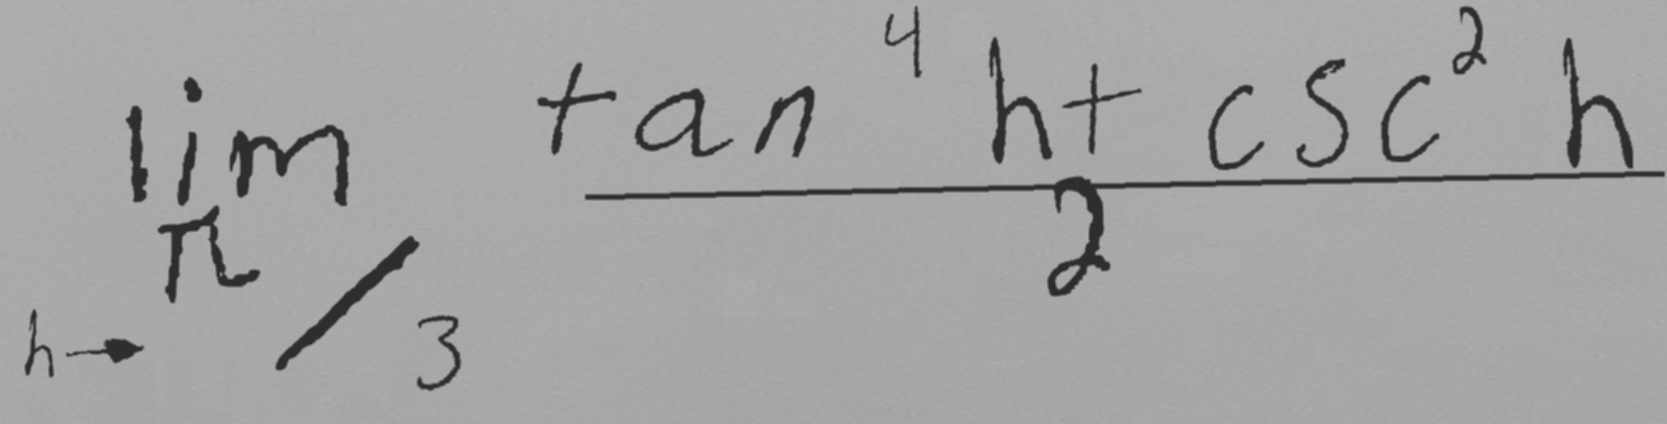 lim h→π/3 (tan⁴ h + csc² h)/2